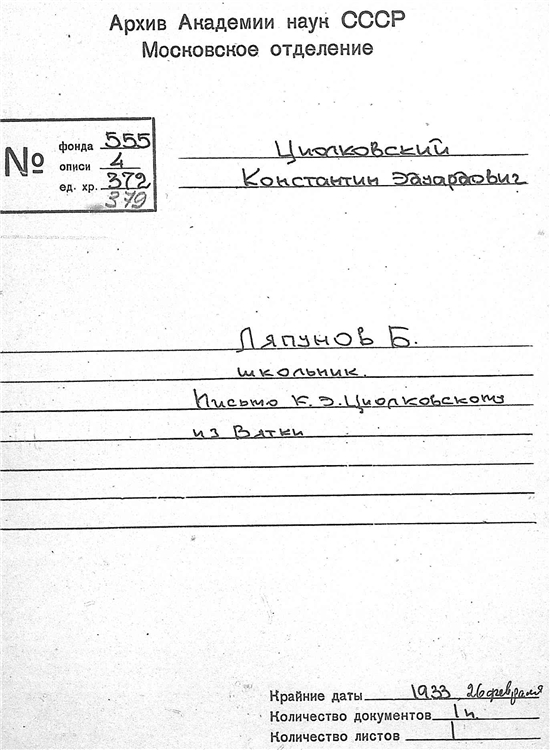 Архив Академии наук СССР
Московское отделение
№
фонда 555
описи 4
ед. хр. 372
379
Циолковский
Константин Эдуардович
Ляпунов Б.
школьник.
Письмо К.Э.Циолковского
из Вятки
Крайние даты 1933 26 февраля
Количество документов 1 п.
Количество листов 1